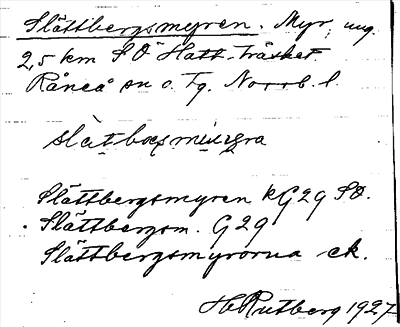 Slättbergsmyren. Myr, ung.
2,5 km SO Hatt-träsket.
Råneå sn o. tg. Norrb. l.
slätbærsmiuręra
Slättbergsmyren kG29 SO.
Slättbergsm. G29
Slättbergsmyrorna ek.
H Rutberg 1927